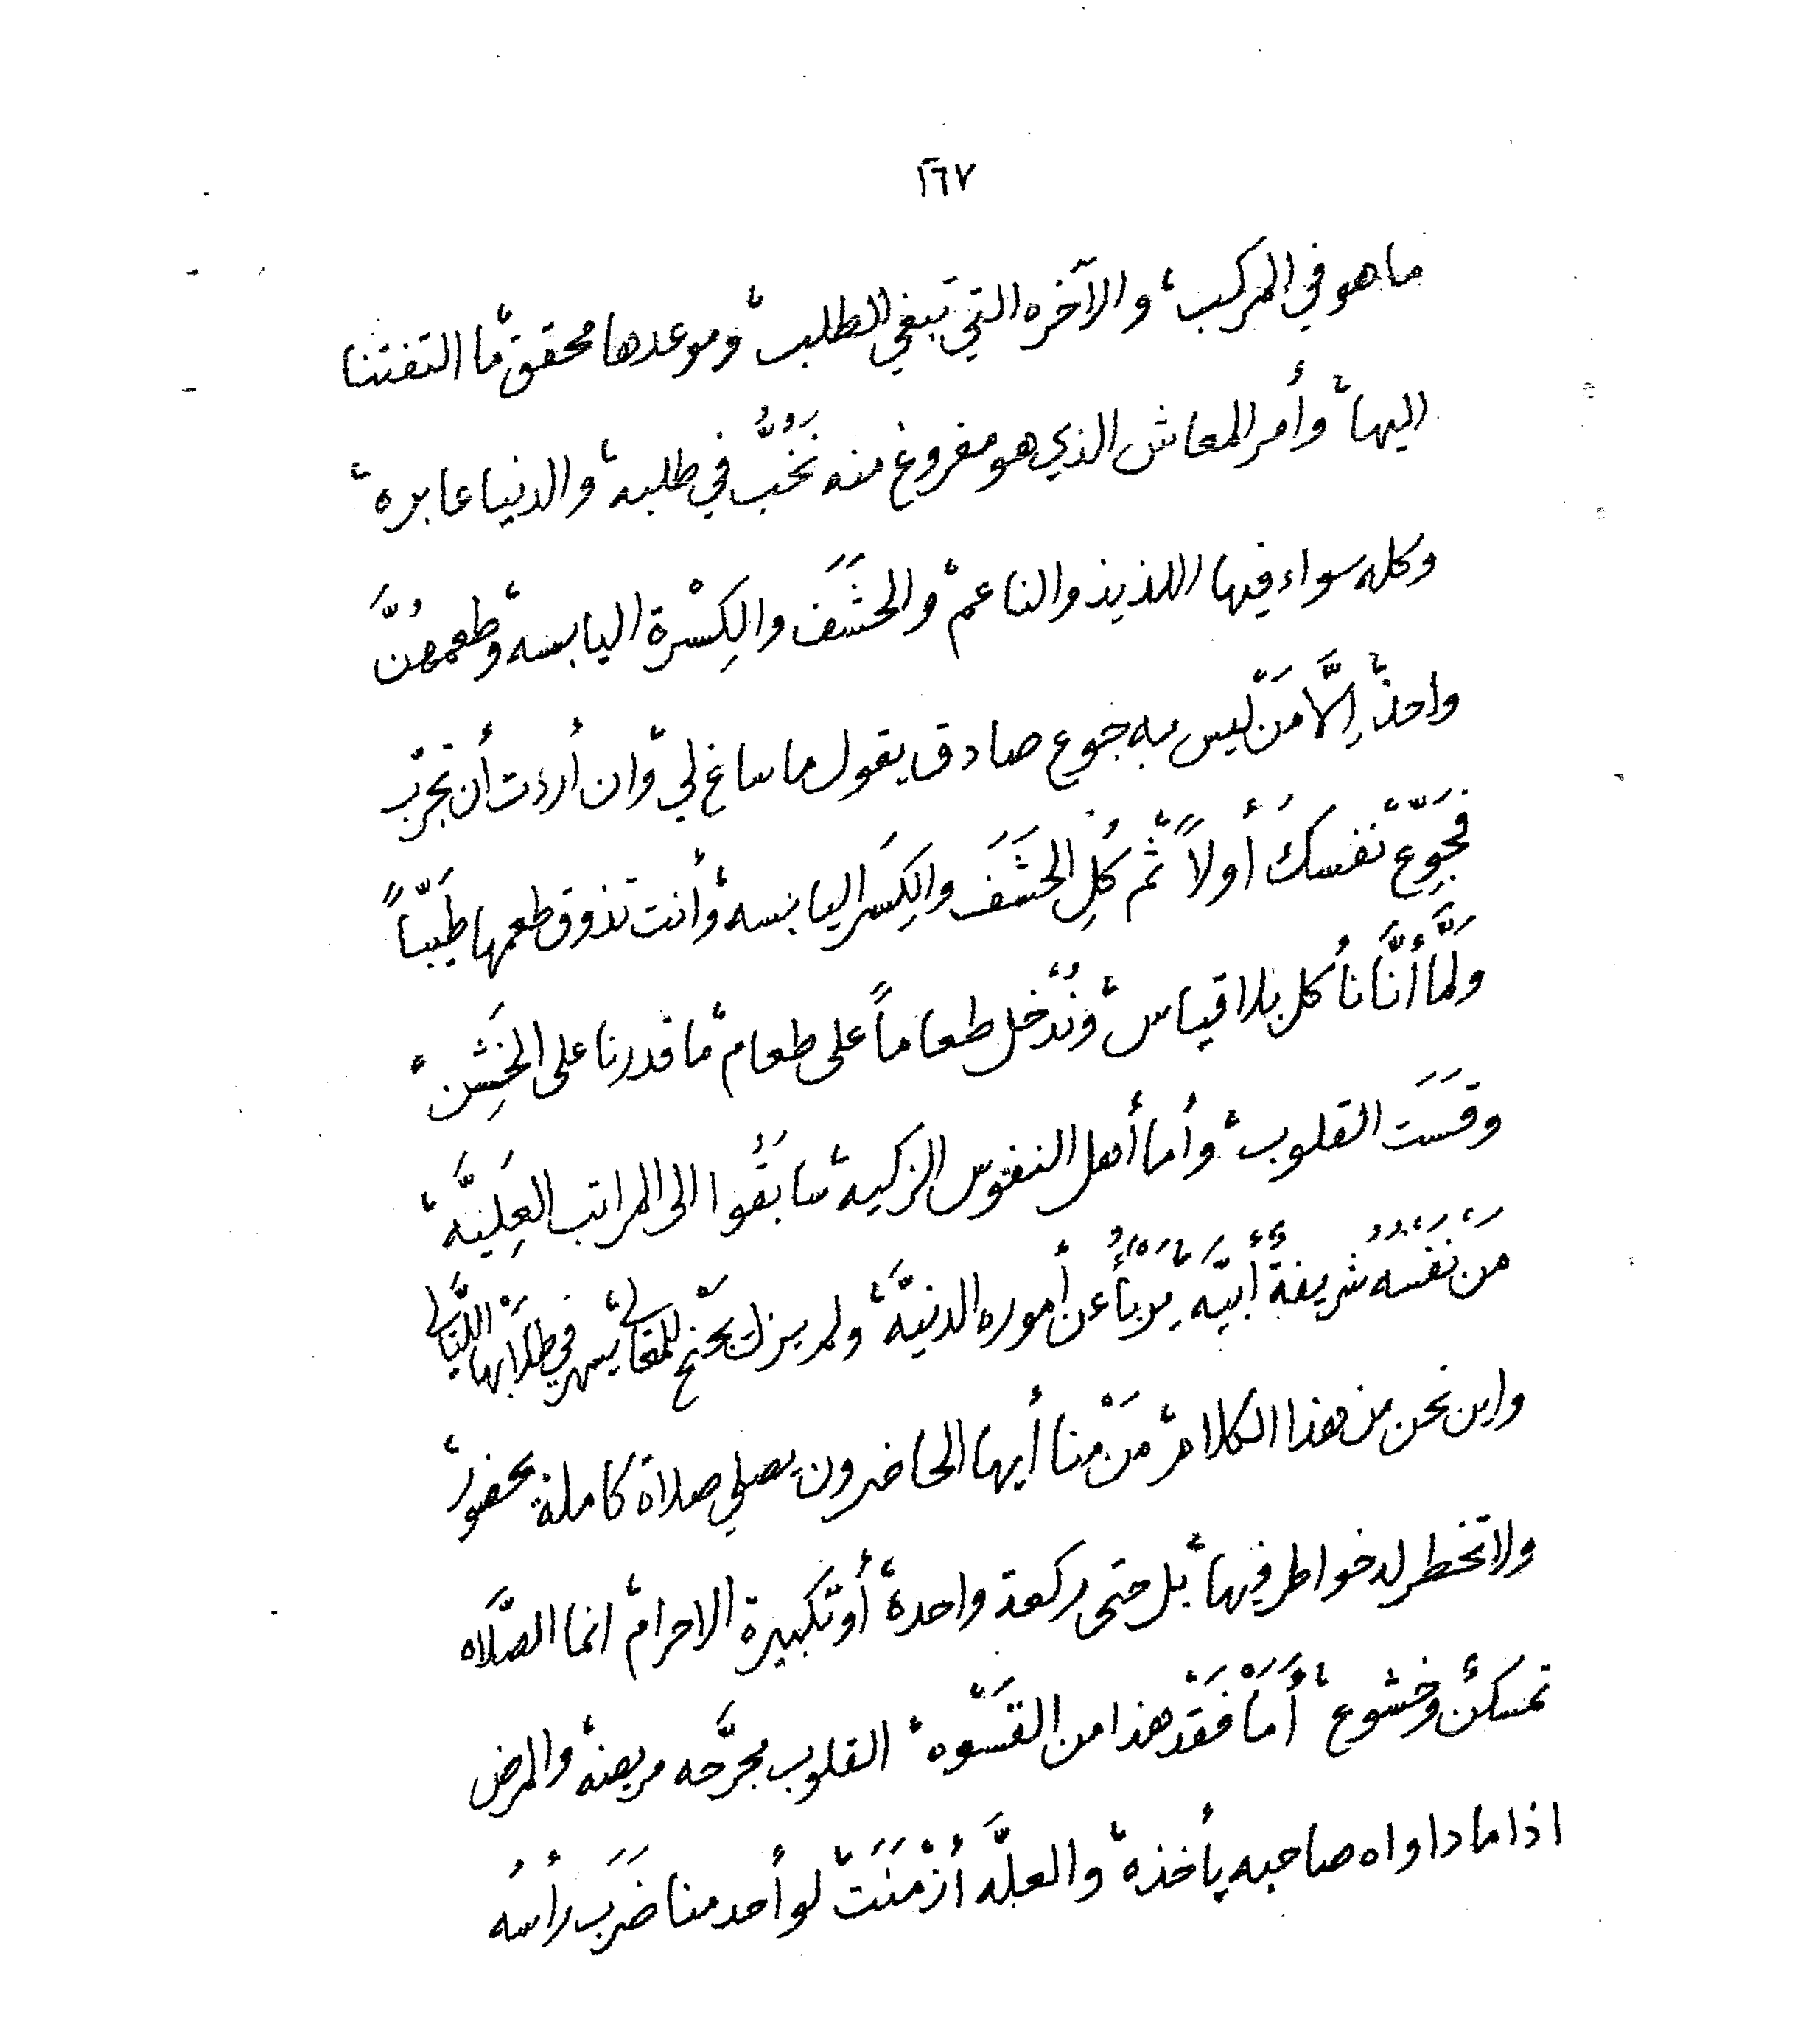 ١٦٧
ما هو في المركب، والآخره التي تبغي الطلب، وموعدها محقق، ما التفتنا
اليها، وأمر المعاش الذي هو مفروغ منه نَخُبُّ في طلبه، والدنيا عابره،
وكله سواء فيها اللذيذ والناعم، والحشَفَ والكِسْرة اليابسه، وطعمهُنَّ
واحد، إلَّا مَنْ ليس به جوع صادق يقول ما ساغ لي، وان أردت أن تجرّب
فجَوِّعْ نفسَكَ أولاً، ثم كُلِ الحشَفَ والكِسَر اليابسه، وأنت تذوق طعمها طيّباً
ولَمَّا أنَّا نأكل بلا قياس، ونُدْخل طعاماً على طعام، ما قدرنا على الخَشِن،
وقَسَت القلوب، وأما أهل النفوس الزكيه، سابَقُوا الى المراتب العِليَّه،
مَنْ نَفْسُهُ شريفةٌ أبيَّه، يَرْبَأُ عن أموره الدنيَّه، ولم يزل يَجْنح للمعالي، يسهر في طِلَابها الليَالي
واين نحن من هذا الكلام، مَنْ منا أيها الحاضرون يصلي صلاة كاملة بحضور،
ولا تخطر له خواطر فيها، بل حتى ركعة واحدة، أو تكبيرة الاحرام، انما الصَّلَاه
تمسكُن وخشوع، أمَا فَقْد هذا من القَسْوه، القلوب مجرَّحه مريضه، والمرض
اذا ما داواه صاحبه يأخذه، والعلَّه أزْمَنَتْ، لو أحد منا ضَرَب رأسُه